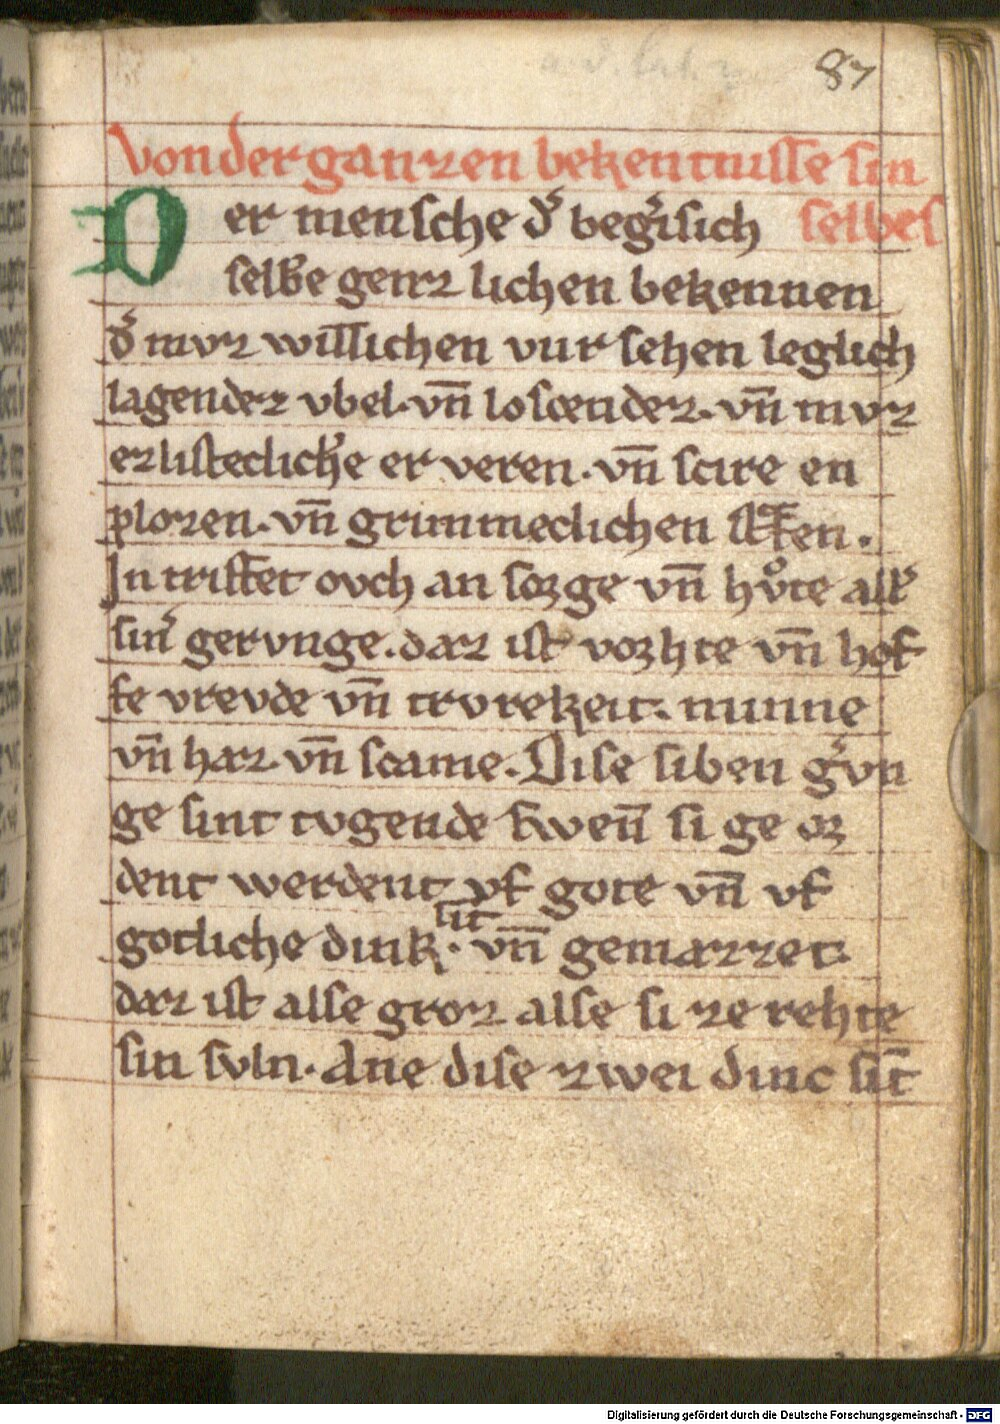 87
von der ganzen bekentnisse sin
selbes
Der mensche dˢ begˢi sich
selbe genz lichen bekennen
dˢ mvz willichen vur sehen leglich
lagender vbel · vn̄ loscender · vn̄ mvz
er listecliche er veren · vn̄ scire en
plozen · vn̄ grimmeclichen
In triffet ovch an sorge vn̄ hvͦte allˢ
sinˢ gerunge · daz ist vorhte vn̄ hof
fe vrevde vn̄ trvrekeit · minne
vn̄ haz · vn̄ scame · Dise siben gˢvn
ge sint tvgende swen̄ si ge or
dent werdent vf gote vn̄ vf
gotliche dink · sit vn̄ gemazzet ·
daz ist alse groz alse si ze rehte
sin svln · Ane dise zwei dinc sīt
Digitalisierung gefördert durch die Deutsche Forschungsgemeinschaft - DFG